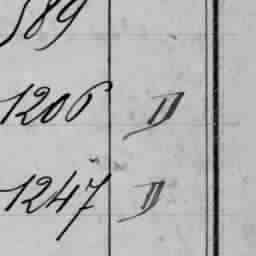 589
1206 D
1247 D